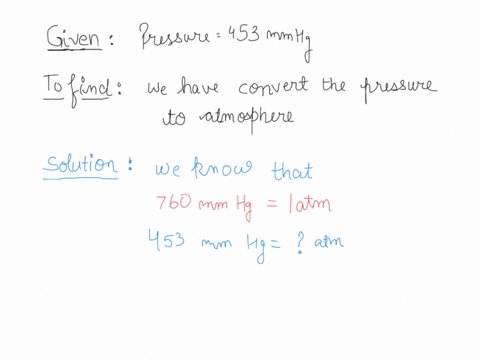 Given : Pressure = 453 mmHg
To find : we have convert the pressure
to atmosphere
Solution : we know that
760 mm Hg = 1atm
453 mm Hg = ? atm